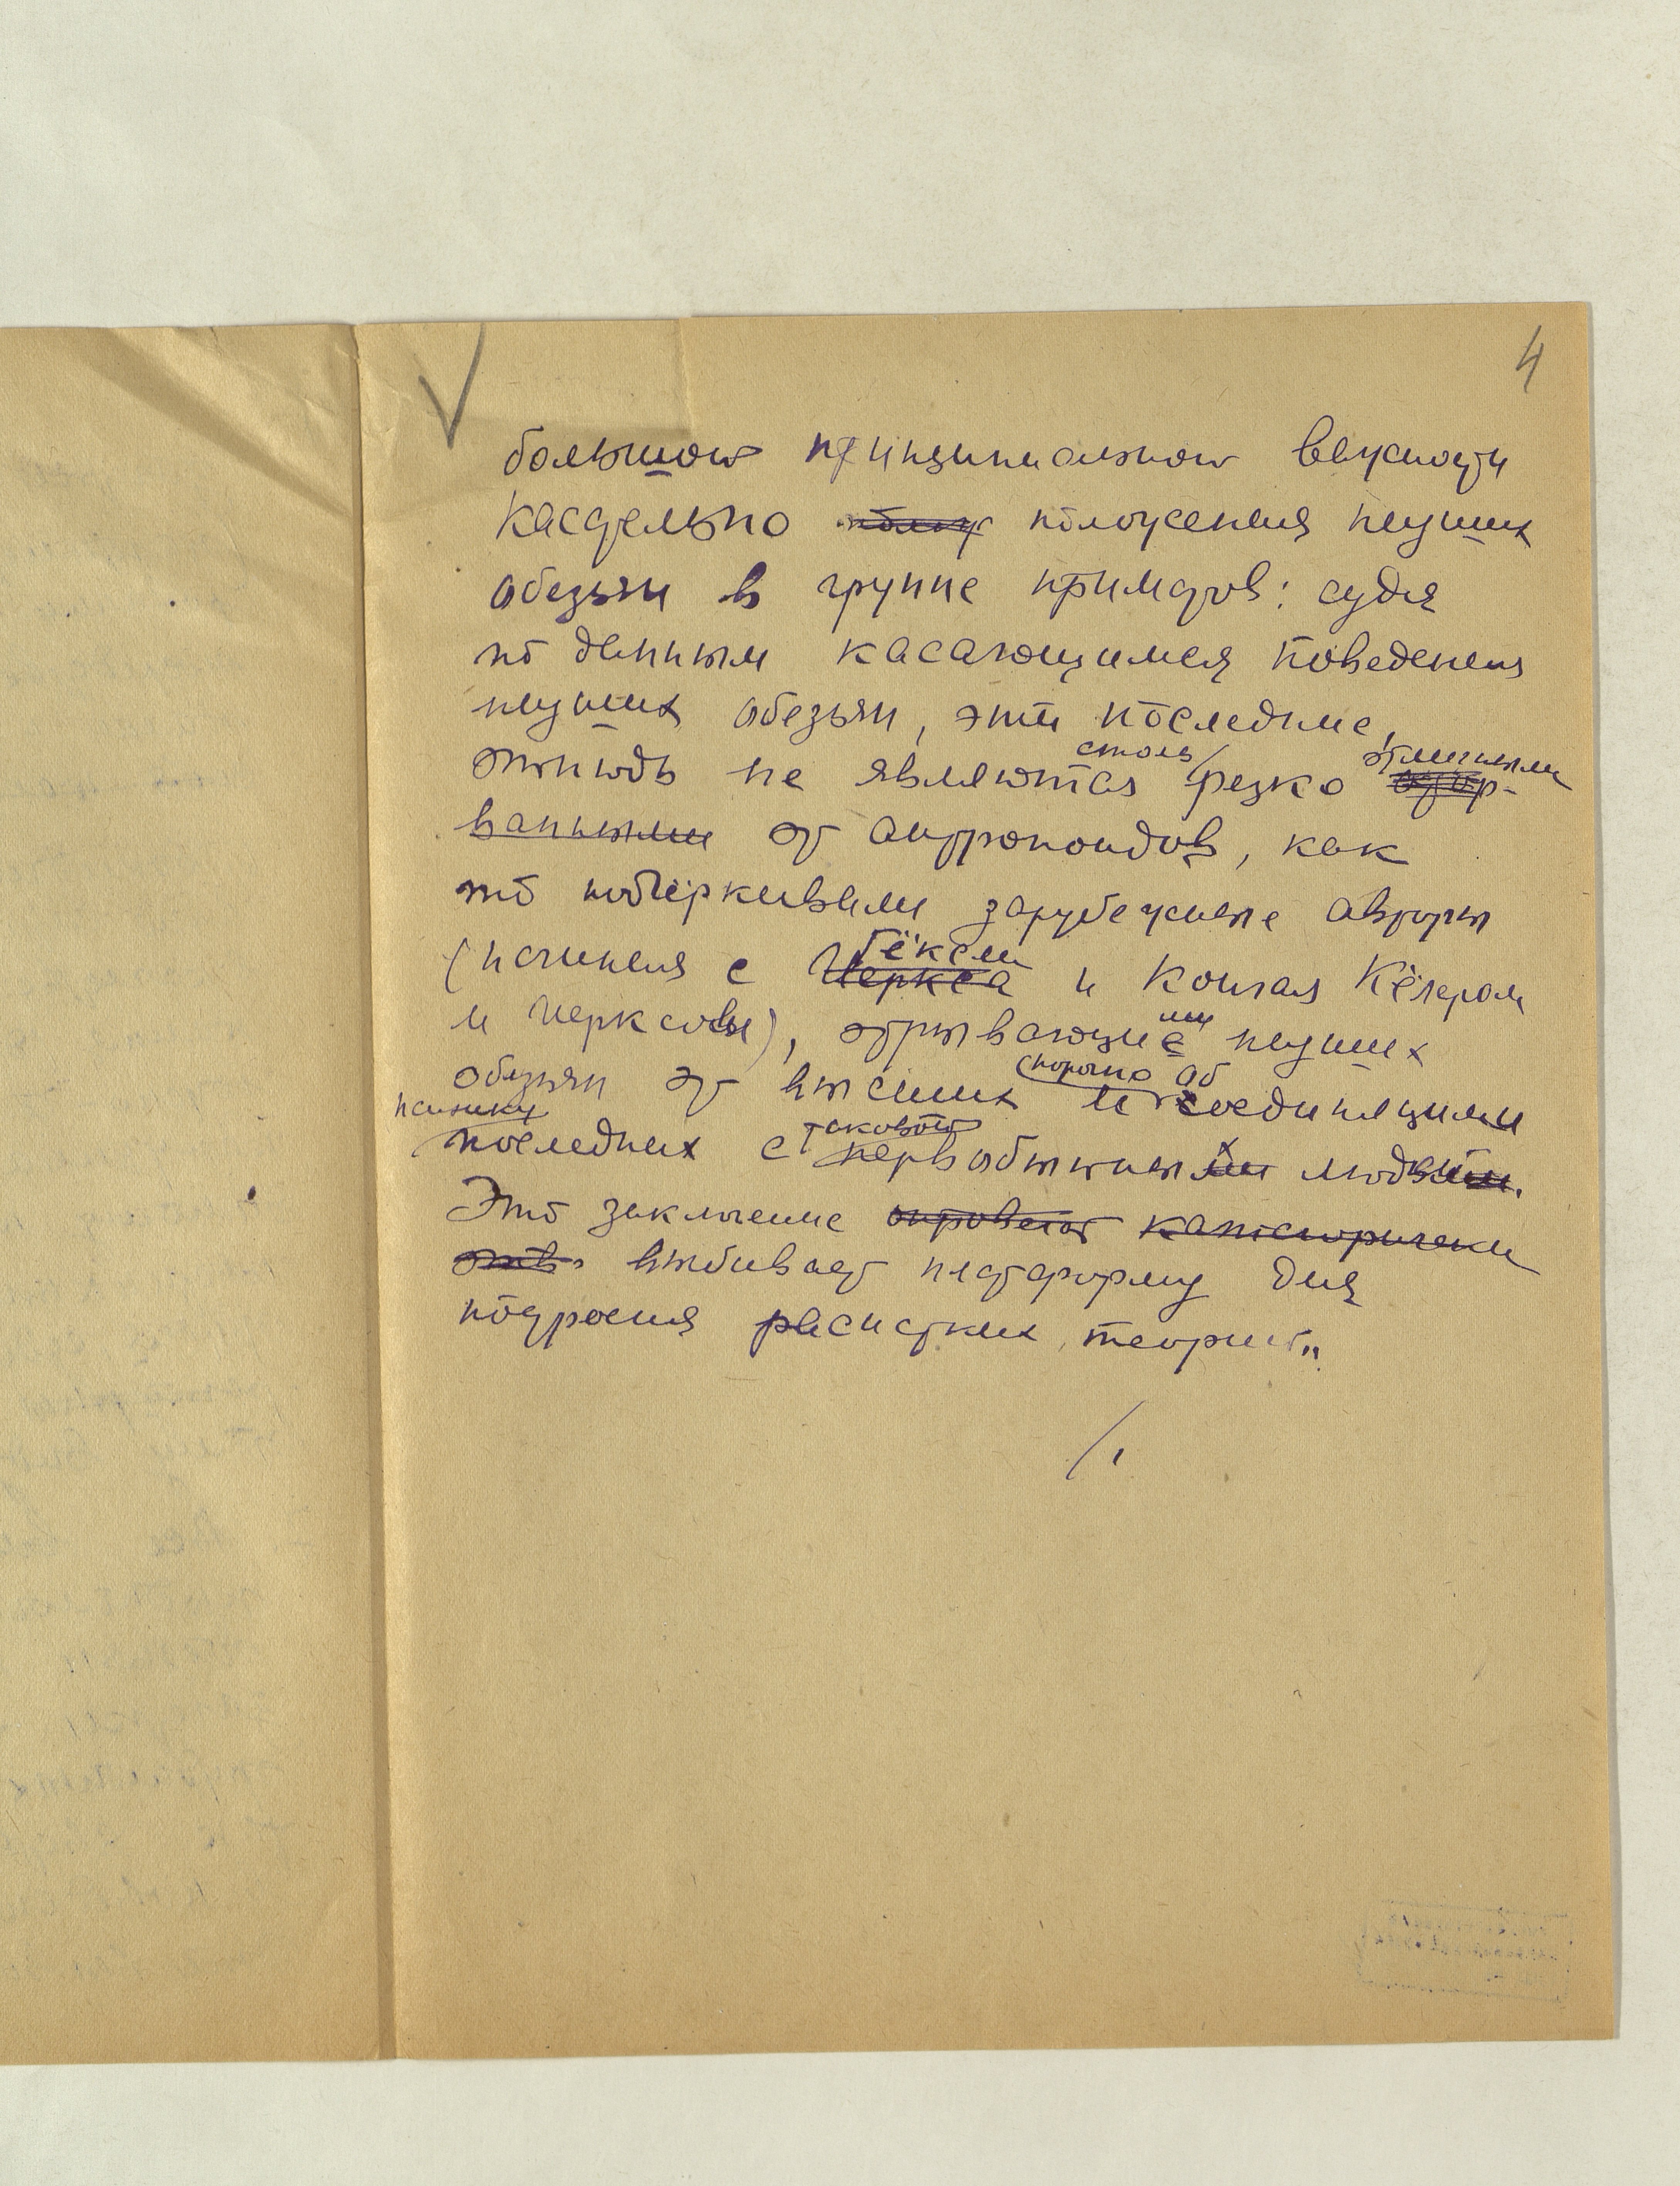 4
большой принципиальной важности
касательно полож положения низших
обезьян в группе приматов: судя
по данным касающимся поведения
низших обезьян, эти последние,
отнюдь не являются столь резко отличными отор-
ванными от антропоидов, как
то подчеркивали зарубежные авторы
(начиная с Иеркса Гёксли и кончая Кёлером
и Иерксом), отрывающие ими низших
обезьян от высших и порочно об соединяющими
психику последних с таковой первобытных людьми.
Это заключение опровегает категорически
это выбивает платформу для
построения расистких теорий.